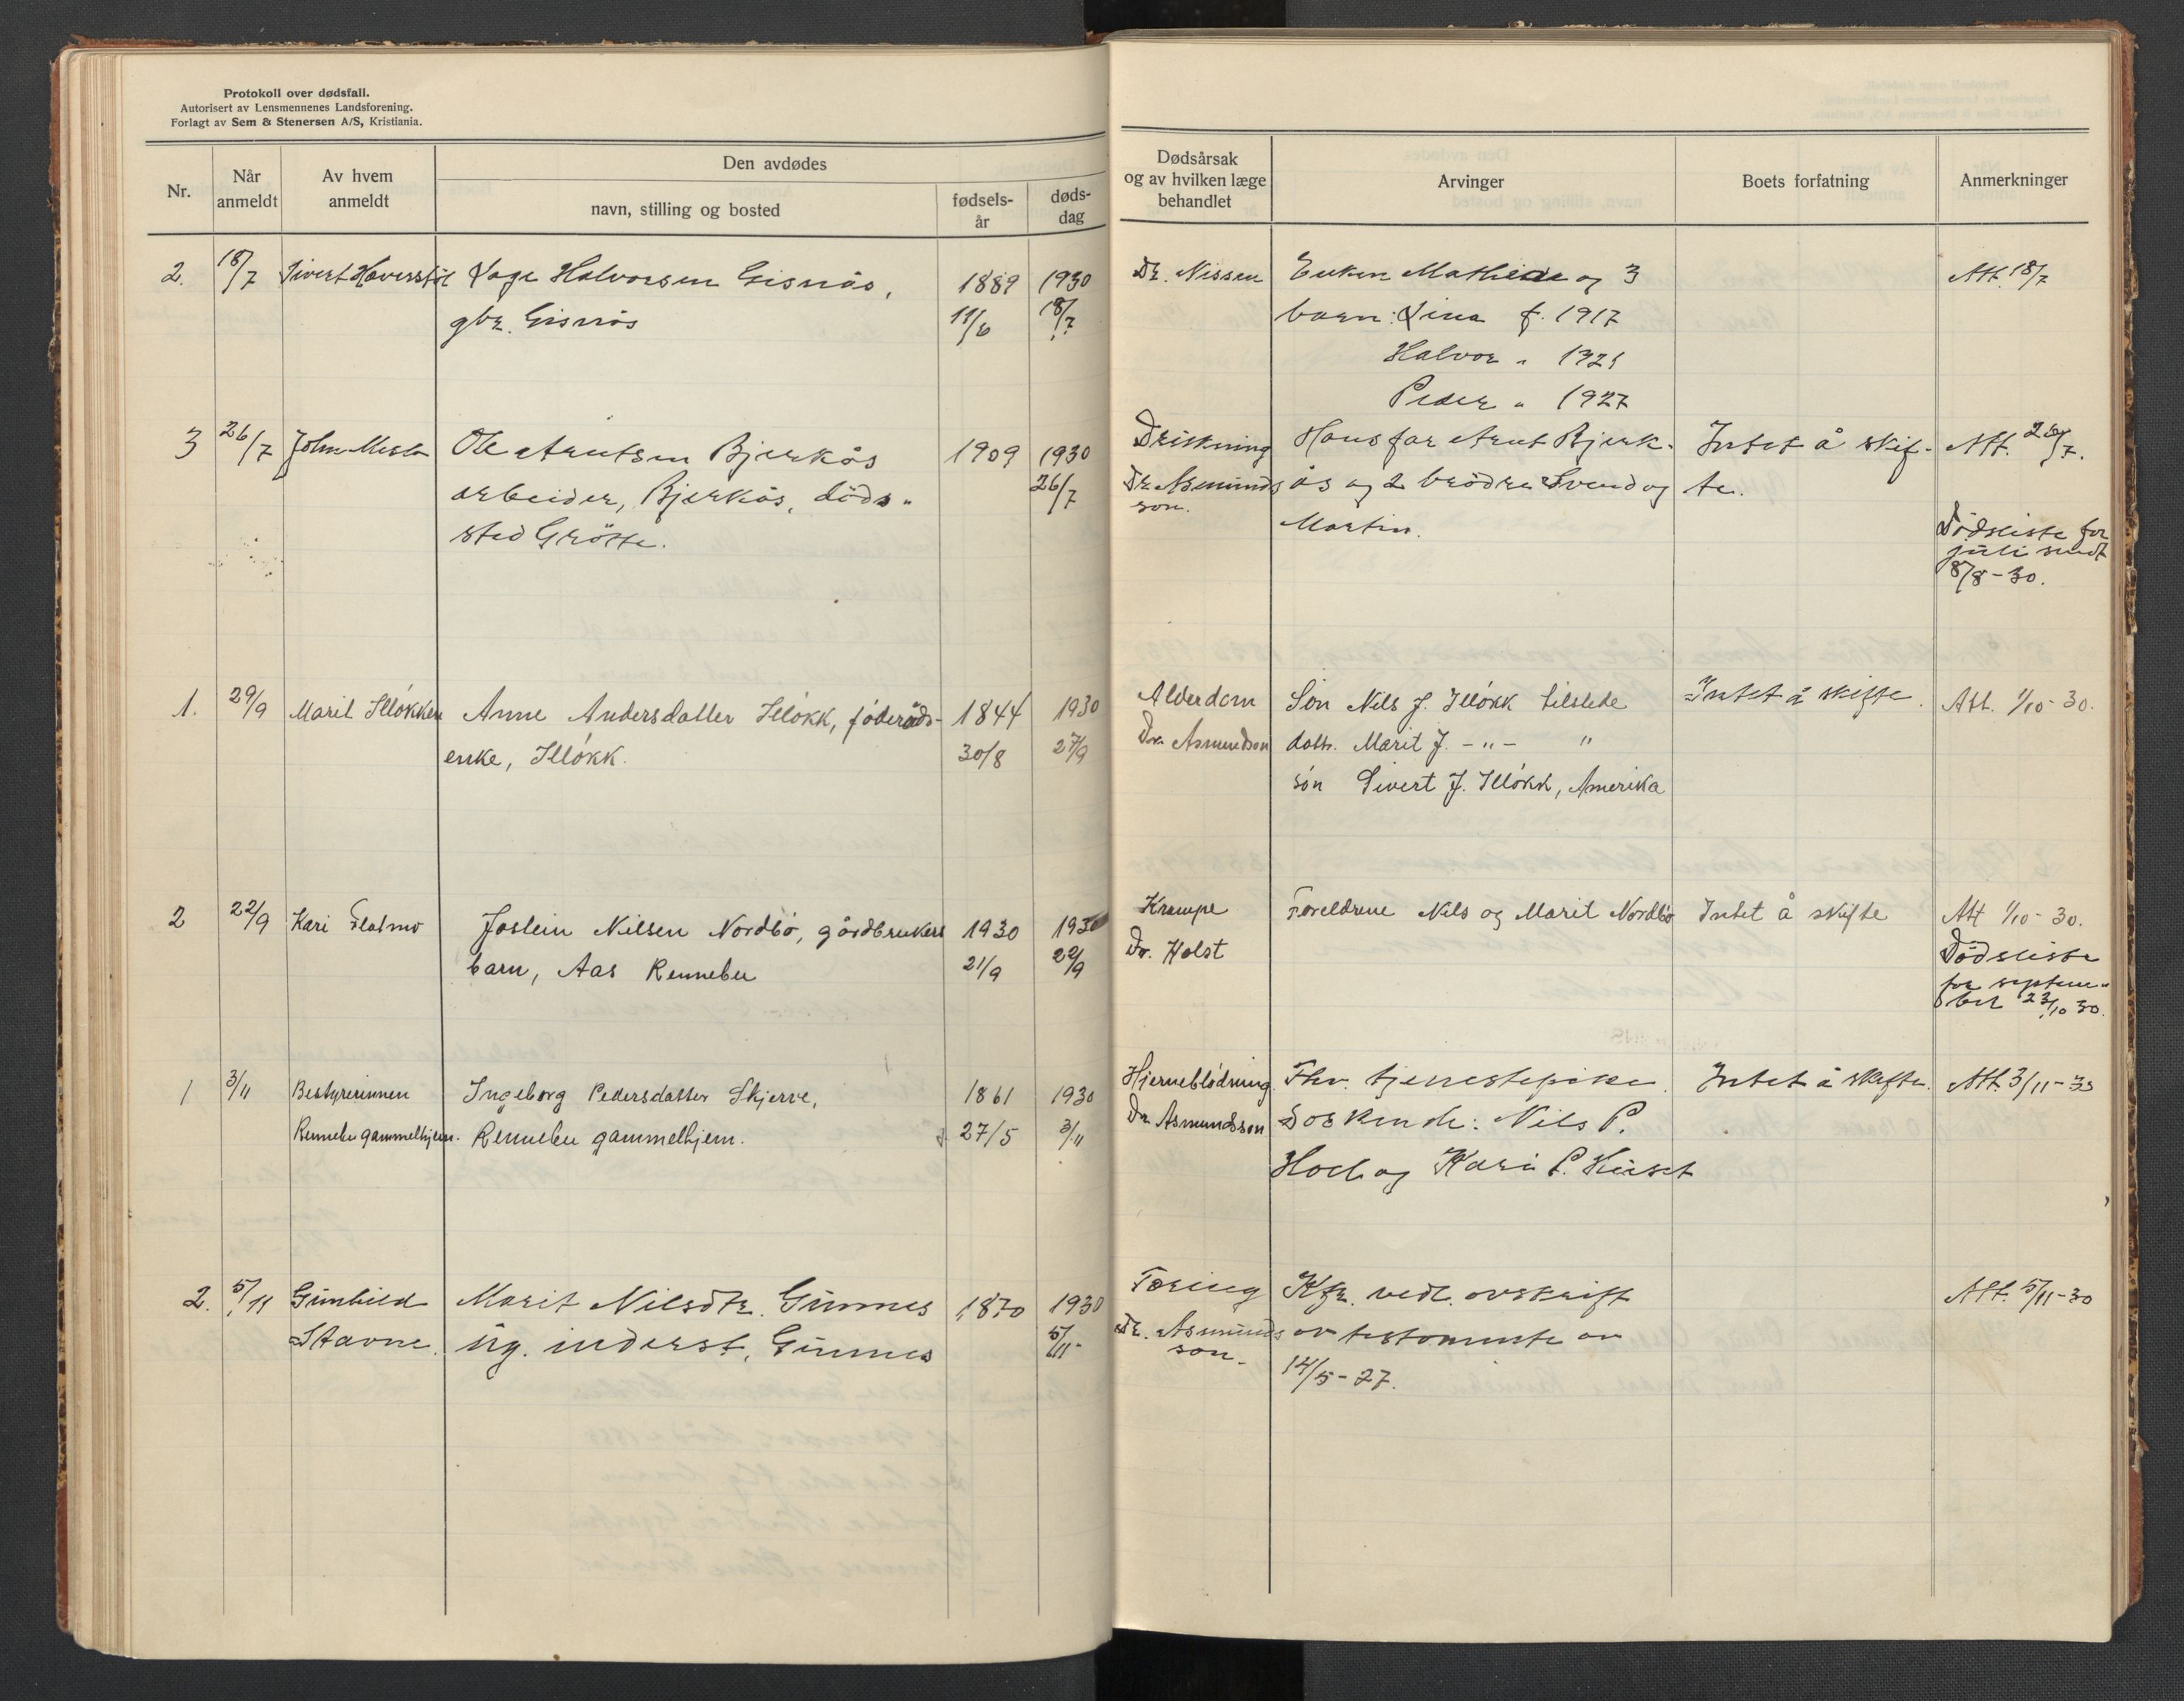 Protokoll over dødsfall.
Autorisert av Lensmennenes Landsforening.
Forlagt av Sem & Stenersen A/S, Kristiania.
Nr.
Når anmeldt
Av hvem anmeldt
Den avdødes
navn, stilling og bosted
fødsels-år
døds-dag
Dødsårsak og av hvilken læge behandlet
Arvinger
Boets forfatning
Anmerkninger
2. 18/7 Sivert Haverstøl Halvorsen Gisnås, 1889 1930 Dr. Nissen Enken Mathilde og 3 Att. 18/7
gbr. Gisnås 11/6 18/7 barn: Lina f. 1917
Halvor "
Peder " 1927
3 26/7 John Ole Arntsen Bjerkås 1909 1930 Drukning Hans far Arnt Bjerk- Intet å skif- Att. 28/7.
arbeider, Bjerkås, døds- 26/7 Dr. Asmunds ås og 2 brödre Svend og te.
sted Grötte. son. Martin.
Dödsliste for
juli sendt
8/8-30.
1. 29/9 Marit Illøkken Anne Andersdatter Illøkk, føderåds- 1844 1930 Alderdom Søn Nils J. Illøkk tilstede Intet å skifte. Att. 1/10-30.
enke, Illøkk. 30/8 27/9 Dr. Asmundson datt. Marit J. -"- "
søn Sivert J. Illøkk, Amerika
2 22/9 Kari Flatmo Jostein Nilsen Nordbø, gårdbrukers 1930 1930 Krampe Foreldrene Nils og Marit Nordbø Intet å skifte Att 1/10-30.
barn, Aas Rennebu 21/9 22/9 Dr. Holst Dödsliste
for septem-
ber 23/10 30.
1 3/11 Bestyrerinnen Ingeborg Pedersdatter Skjerve, 1861 1930 Hjerneblödning Fhv. tjenestepike. Intet å skifte. Att. 3/11-30
Rennebu gammelhjem. Rennebu gammelhjem. 27/5 3/11 Dr. Asmundsson Söskende: Nils P.
Hoel og Kari P.
2. 5/11 Gunhild Marit Nilsdtr. Gunnes 1870 1930 Tæring Kfr. vedl. avskrift Att. 5/11-30
Stavne. ug. inderst, Gunnes 5/11- Dr. Asmunds av testamente av
son. 14/5-27.